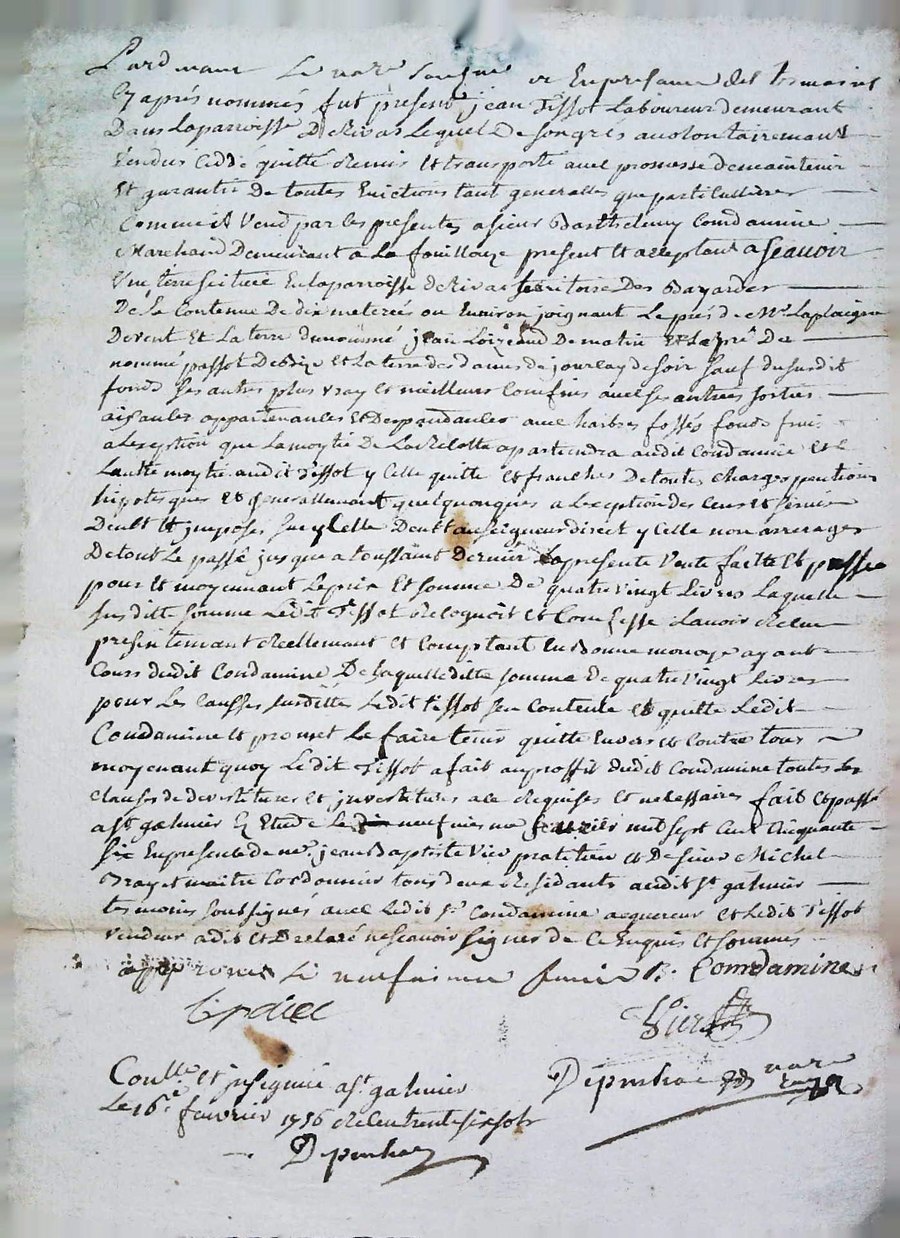 Pardevant Le no.re Soussigné et En presance des tesmoins
Cy aprés nommés fut present jean Tissot Laboureur demeurant
Dans La parroisse De Rivas Lequel De Son grés a volontairemant
Vendus Ceddé quitté Remis Et transporté avec promesse De maintenir
Et garantir De toutes Evictions tant generalles que particullieres
Comme il Vend par les presentes a sieur Barthelemy Comdamine
Marchand Demeurant a La fouillouze present Et acceptant a Seavoir
Une terre Scituée En La parroisse de Rivas territoire Des Bayardes
De La Contenue De dix meterées ou Environ joignant Le pres de Mr Laplaigne
De vent Et La terre du nommé jean De matin Et Le pré De
nommé passot De bize Et La terre des Dames de jourcey de soir Sauf du susdit
fonds Ses autres plus vray Et meilleurs Comfins avec Ses antrées sorties
aisances appartenances Et Dependances avec harbres fossés fonds
a L'exeption que La moytié De La Relotte apartiendra audit Condamine Et L
L'autre moytié audit Tissot y Celle quitte Et franche De toutes Charges pentions
hipoteques Et generallemant quelquonques a L'exeption des Cens Et Servis
Deubt Et jmposés Sur y Celle Deubt au Seigneur direct y Celle non arrerages
De tout Le passé jusque a toussaint Dernier La presente Vente faitte Et passée
pour Et moyennant Le prix Et somme De quatre vingt Livres Laquelle
Susditte somme Ledit Tissot Recognoit Et Comfesse L'avoir Receu
presentemant Reellemant Et Comptant En Bonne monoye ayant
Cours dudit Condamine De Laquelle ditte somme De quatre Vingt Livres
pour Les Causses susdittes Ledit Tissot s'en Contente Et quitte Ledit
Condamine Et promet Le faire tenir quitte Envers Et Contre tous
moyenant quoy Ledit Tissot a fait au proffit dudit Condamine toutes Les
Clauses de devestitures Et jnvestitures a ce Requises Et necessaires fait Et passé
a St galmier En Etude Le neufviesme fevrier mil sept Cent Cinquante
six En presence de me. jean Baptiste Vier pratitien Et De sieur Michel
Brayet maitre Cordonnier tous deux Residants audit St galmier
tesmoins soussignés avec Ledit Sr. Condamine acquereur Et Ledit Tissot
Vendeur a dit Et Declaré ne Scavoir Signer de Ce Enquis Et sommés
approuvé Le neufviesme B. Comdamine
Vier
no.re
Coullé Et jnsignué a St galmier
Le 16e fevrier 1756 Receu trente six sols